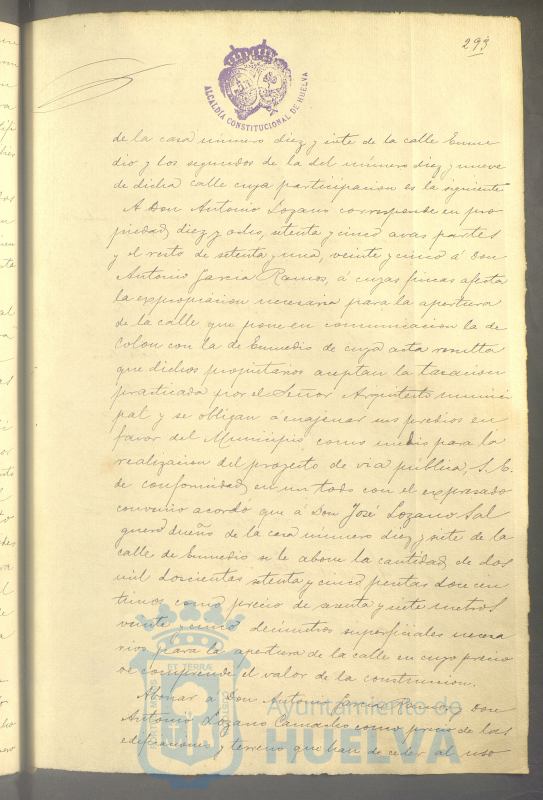 293
ALCALDÍA CONSTITUCIONAL DE HUELVA
de la casa número diez y siete de la calle Enme
dio y los segundos de la del número diez y nueve
de dicha calle cuya participacion es la siguiente
A Don Antonio Lozano corresponde en pro
piedad diez y ocho, setenta y cinco avas partes
y el resto de setenta y una, veinte y cinco á Don
Antonio Garcia Ramos, á cuyas fincas afecta
la expropiacion necesaria para la apertura
de la calle que pone en comunicacion la de
Colon con la de Enmedio de cuya acta resulta
que dichos propietarios aceptan la tasacion
practicada por el Señor Arquitecto munici
pal y se obligan á enajenar sus predios en
favor del Municipio como medio para la
realizacion del proyecto de via publica, S. E.
de conformidad en un todo con el expresado
convenio acordó que á Don José Lozano Sal
guero dueño de la casa número diez y siete de la
calle de Enmedio se le abone la cantidad de dos
mil doscientas setenta y cinco pesetas doce cen
timos como precio de y siete metros
veinte y cinco decimetros superficiales necesa
rios para la apertura de la calle en cuyo precio
se comprende el valor de la construccion.
Abonar a Don Antonio Garcia Ramos y Don
Antonio Lozano Camacho como precio de las
edificaciones y terreno que han de ceder al uso
Ayuntamiento de
HUELVA